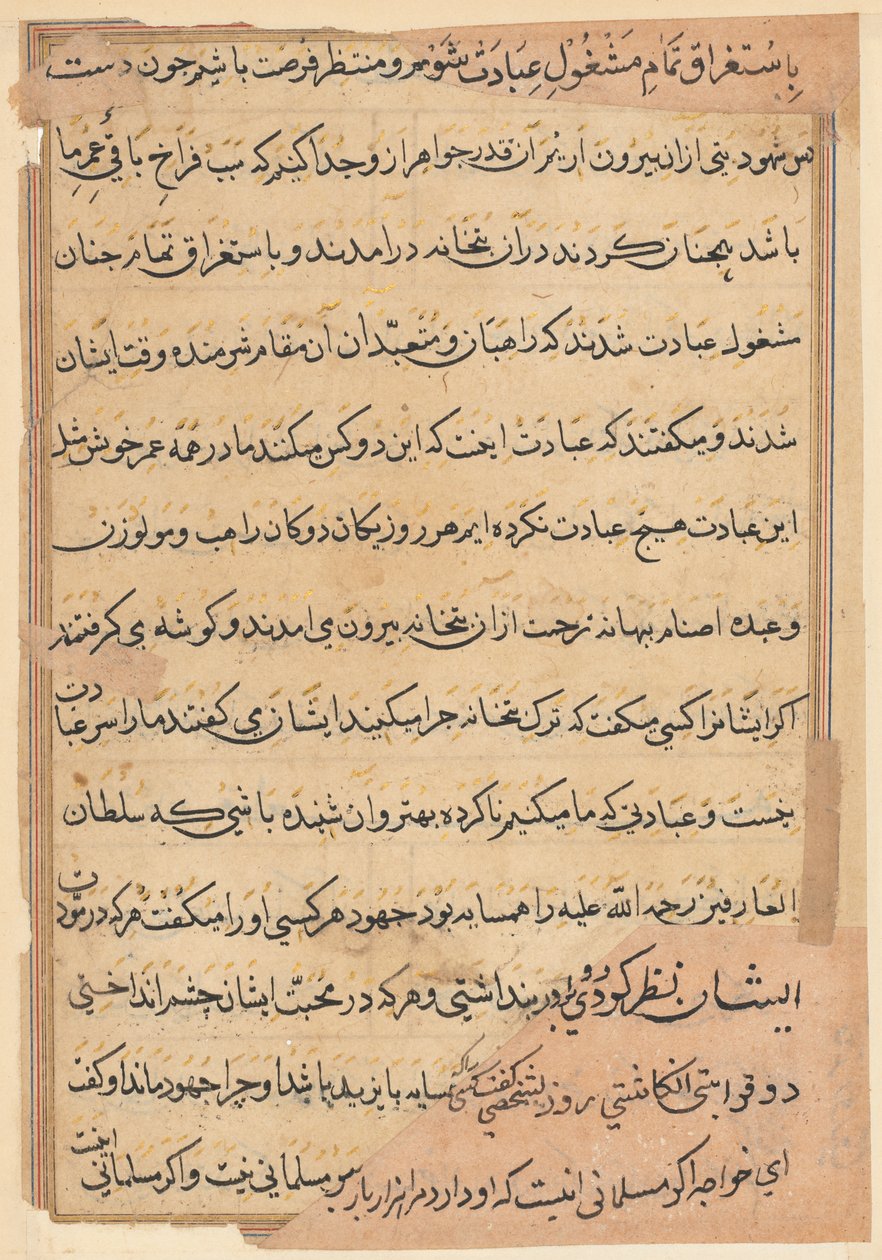 بِاسُتغراق تمَامِ مَشْغُولِ عِبَادَتْ شَوْم و منتظر فرُصَت باشیم جون دست
بتی ازان بیرون اریم آن قدر جواهر از و جدا کنیم که سبب فراخِ باقیِ عُمرِ ما
باشَد همجنان کردند دران بتخانه درامدند و باستغراق تمام جنان
مَشغول عبَادت شدَند که راهبَان و مُتعبّدان آن مقام شرمنده وقت ایشان
شدَند و میکفتند که عبَادتْ اینست که این دو کس میکنند ما در همه عمر خویش مثل
این عبَادت هیج عبادت نکرده ایم هر روز یکان دوکان راهب و مولوزن
و عبده اصنام بهانه زحمت ازان بتخانه بیرون می امدند و کوشه می کرفتند
اکر ایشانرا کسی میکفت که ترک بتخانه جرا میکنید ایشان می کفتند ما را سر عبادت
نیست و عبادتی که ما میکنیم ناکرده بهتر و ان شنیده باشی که سلطان
العارفین رحمة اللّه علیه را همسایه بود جهود هر کسی او را میکفت هر که در موّدت
ایشان نظر کردی بنداشتی و هر که در محبّت ایشان چشم انداختی
دو قرابتی انکاشتی روزی شخصی کفت کسی که همسایه بایزید باشد او چرا جهود ماند او کفت
ای خواجه اکر مسلمانی انیست که او دارد مرا نزار بار بس مسلمانی نیست و اکر مسلمانی اینست